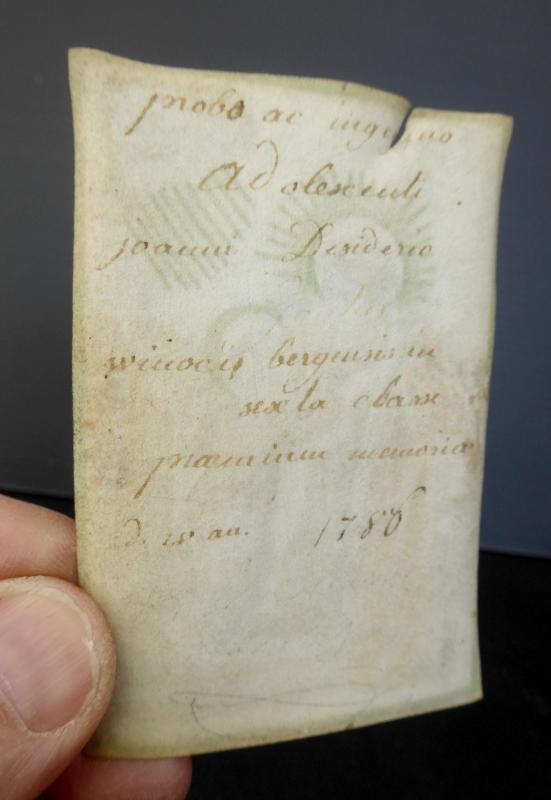 probo ac ingenuo
Adolescenti
joanni Desiderio
winocii bergensis in
sexta classe
præmium memoriæ
D. 15 au. 1786